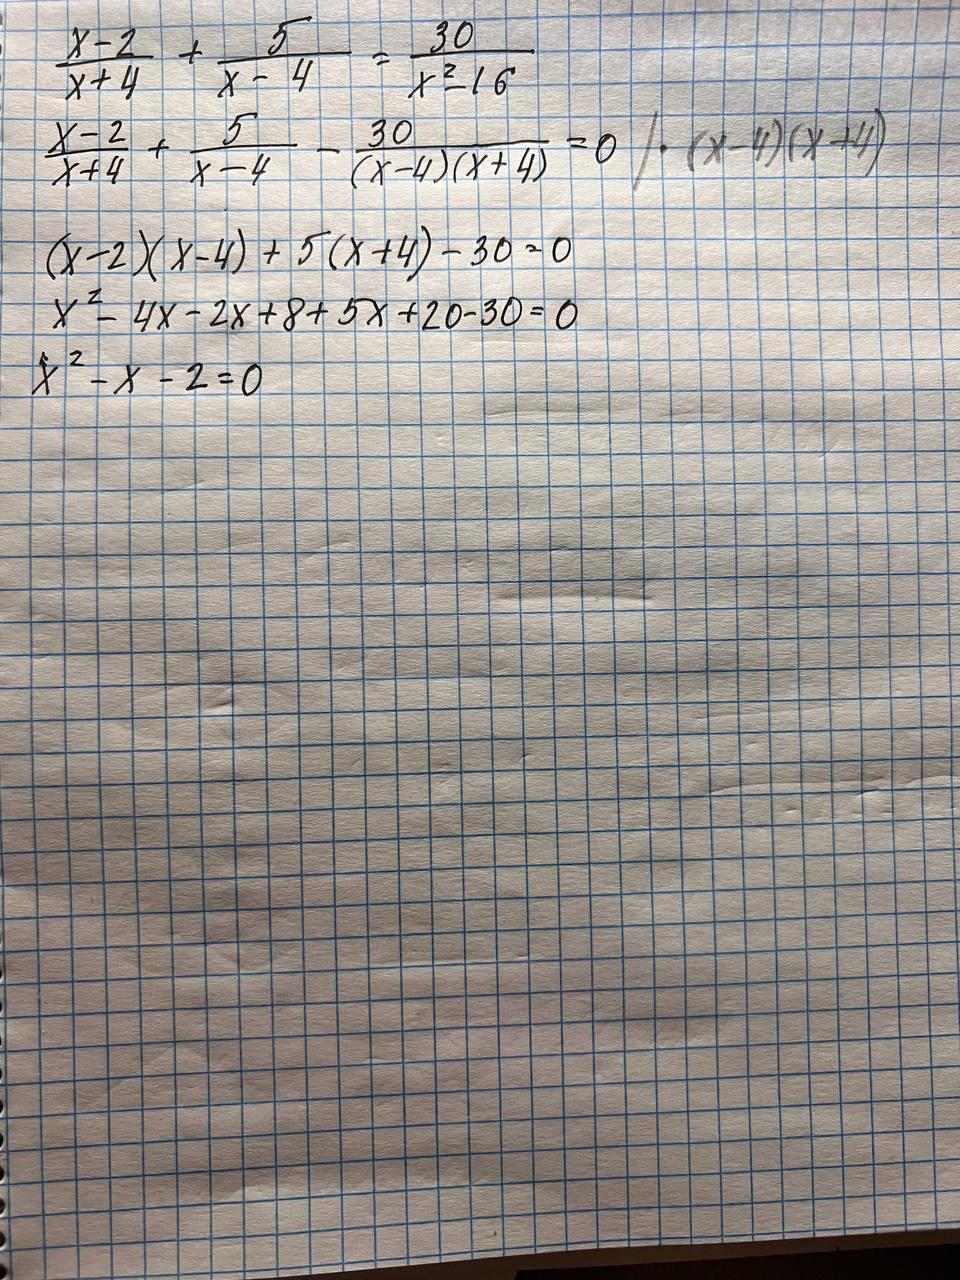 (x-2)/(x+4) + 5/(x-4) = 30/(x²-16)
(x-2)/(x+4) + 5/(x-4) - 30/((x-4)(x+4)) = 0 / · (x-4)(x+4)
(x-2)(x-4) + 5(x+4) - 30 = 0
x² - 4x - 2x + 8 + 5x + 20 - 30 = 0
x² - x - 2 = 0